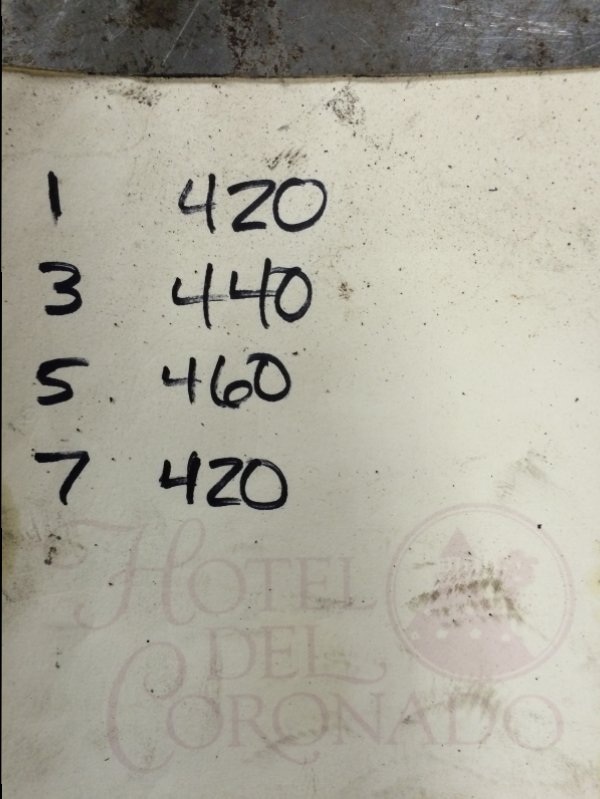 1 420
3 440
5 460
7 420
HOTEL
DEL
CORONADO